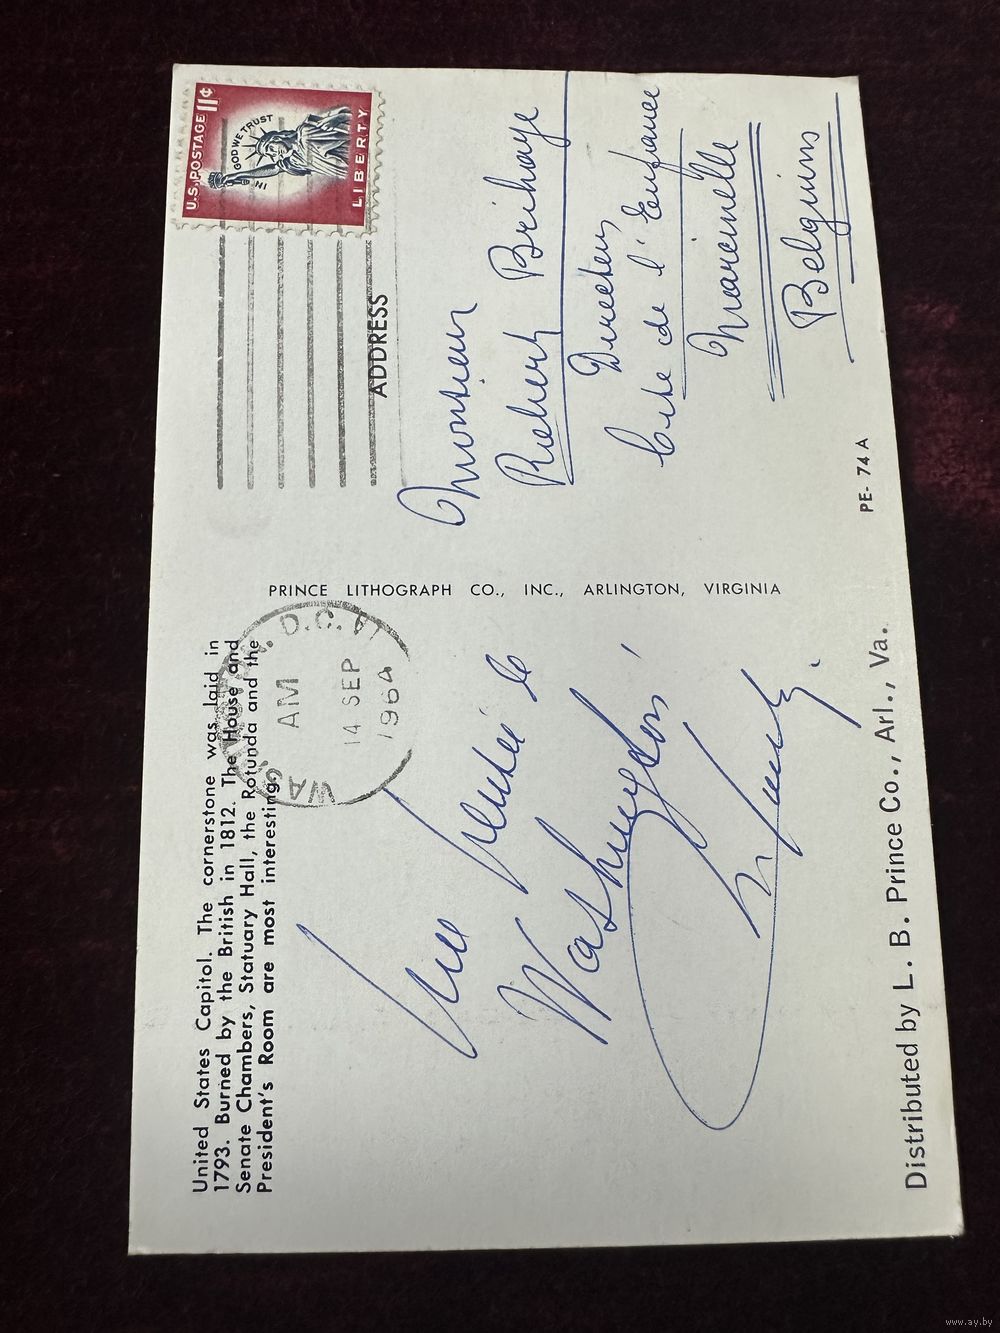 United States Capitol. The cornerstone was laid in
1793. Burned by the British in 1812. The House and
Senate Chambers, Statuary Hall, the Rotunda and the
President's Room are most interesting.
D.C.
AM
14 SEP
1964
WAS
Washington
Distributed by L. B. Prince Co., Arl., Va.
PRINCE LITHOGRAPH CO., INC., ARLINGTON, VIRGINIA
U.S. POSTAGE 11¢
IN GOD WE TRUST
LIBERTY
ADDRESS
Monsieur
Robert Brihaye
Directeur
Cité de l'Enfance
Marcinelle
Belgium
PE-74A
www.ay.by